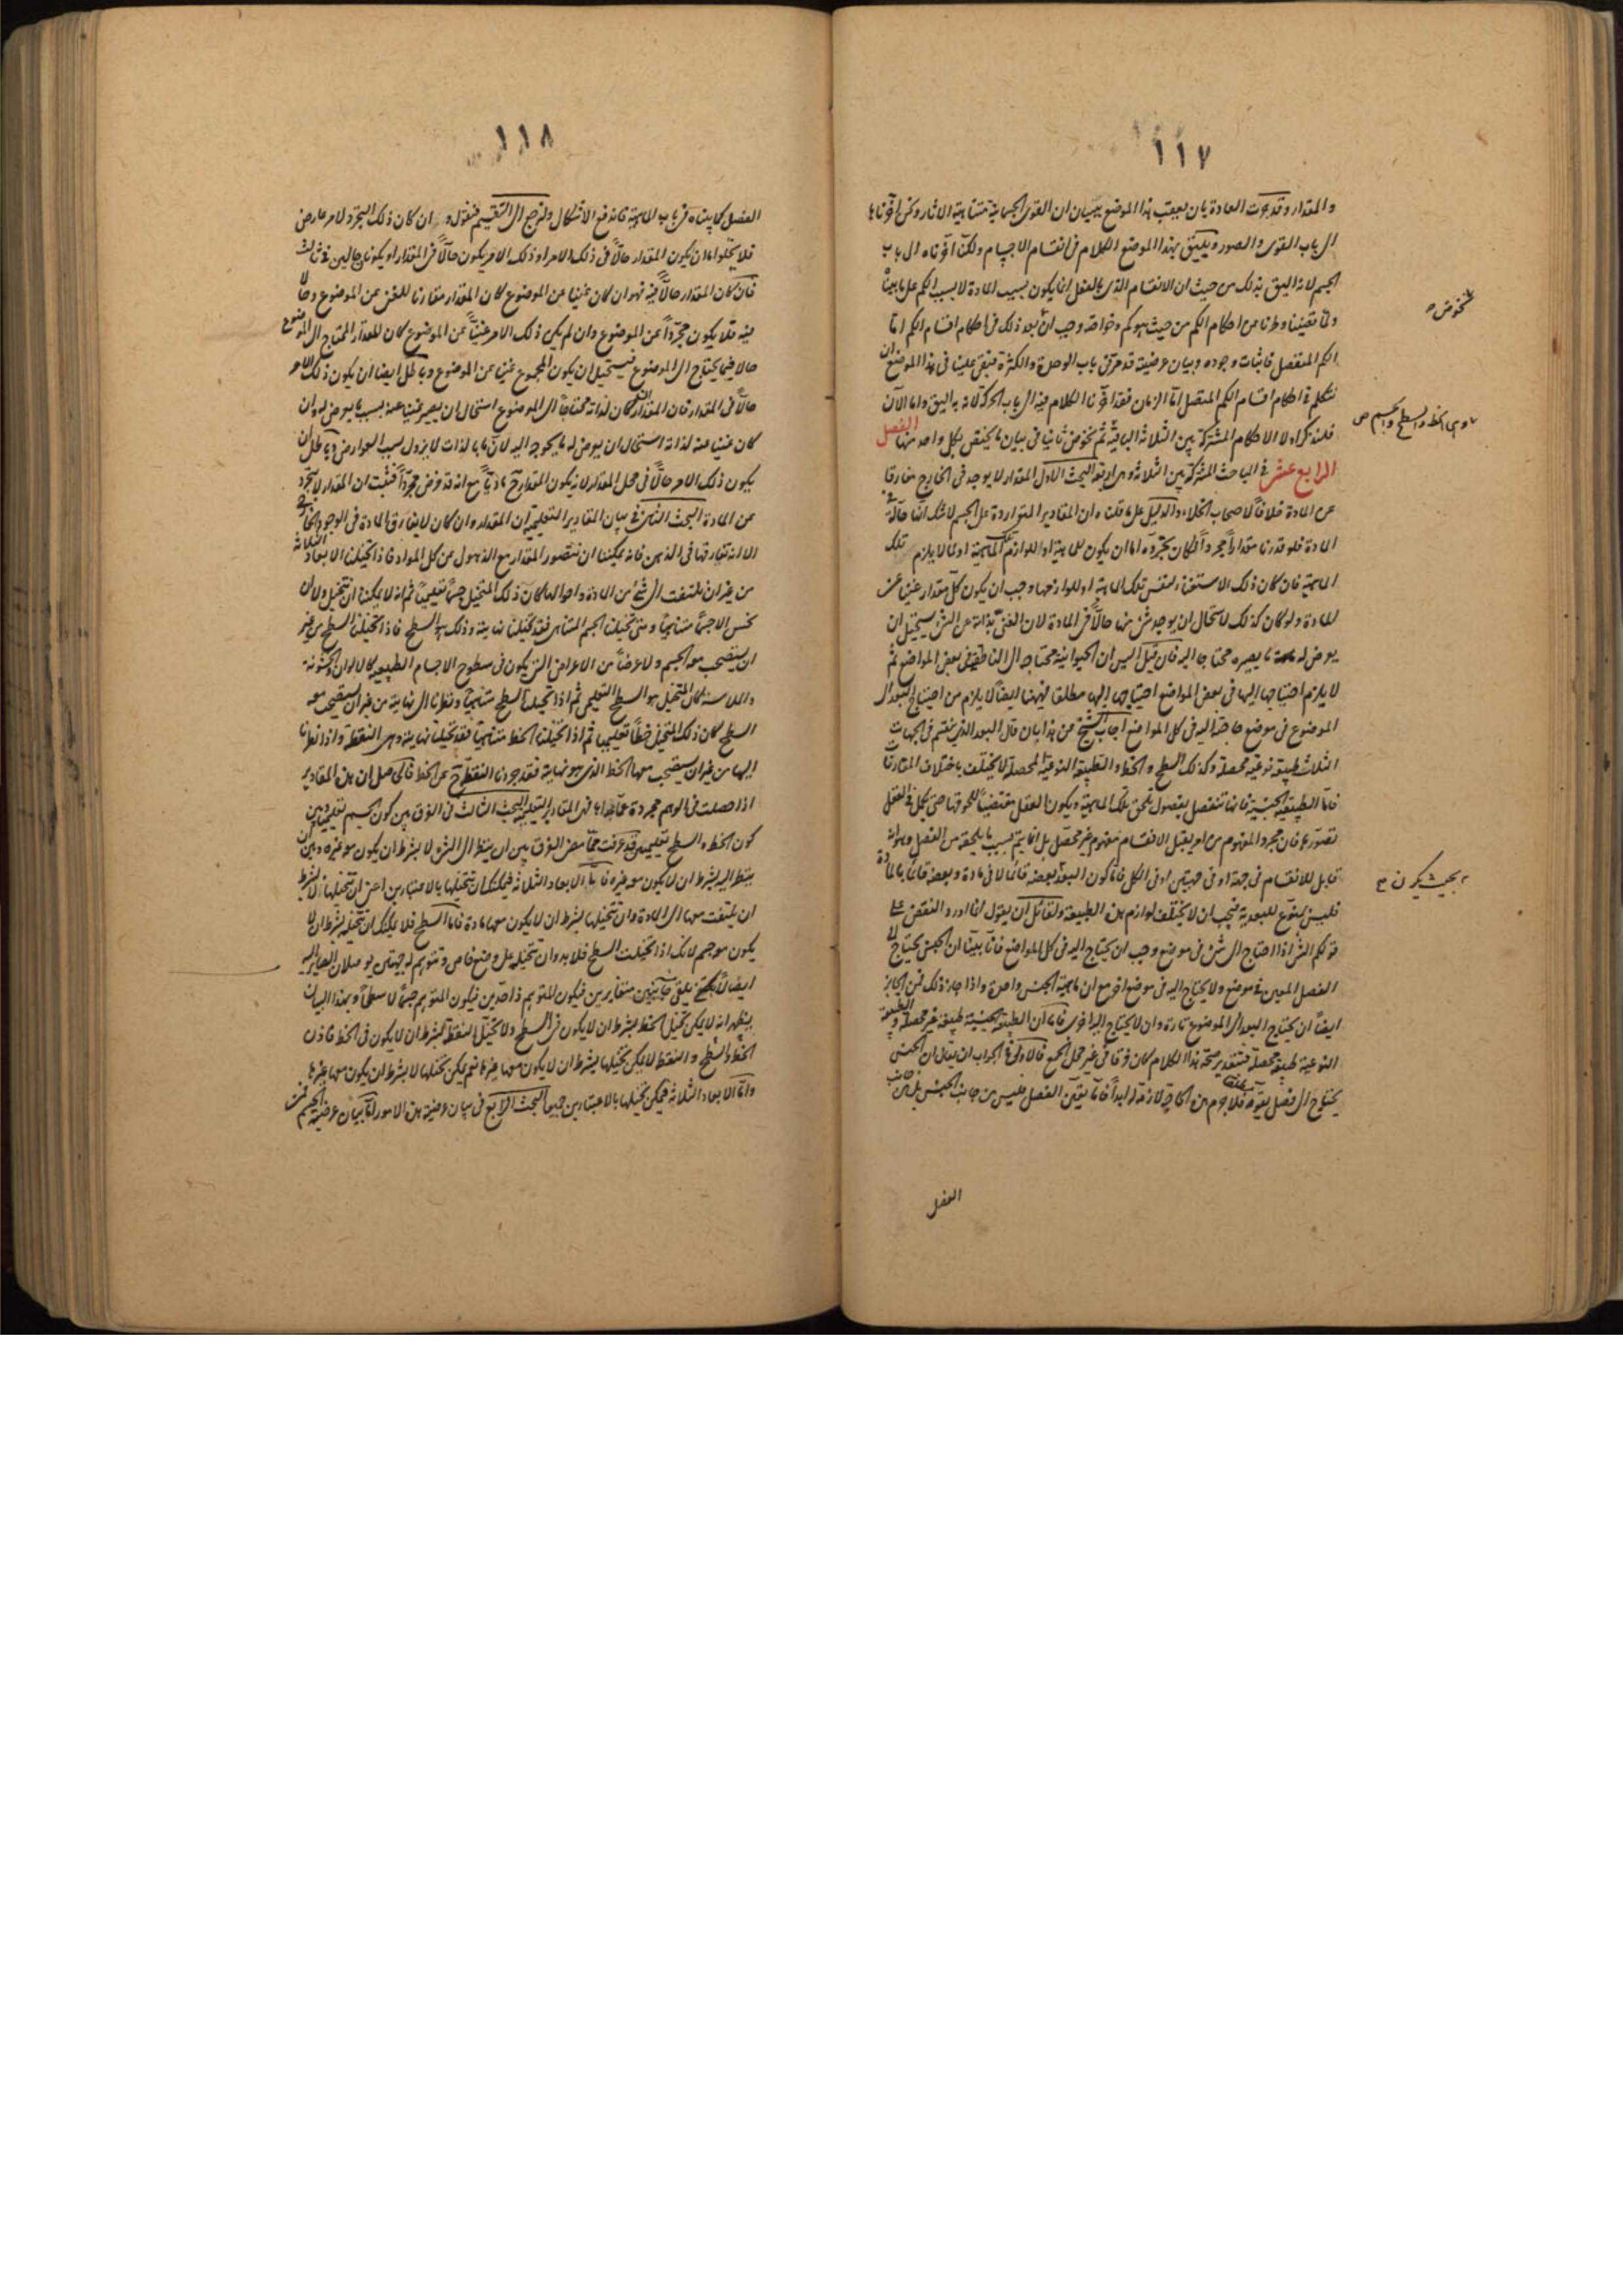 ١١٧
والمقدار وقد جرت العادة بان يعقب هذا الموضع ببيان ان القوى الجسمانية متناهية الاثار ولكن اخرناها
الى باب القوى والصور ويليق بهذا الموضع الكلام فى انقسام الاجسام ولكنا اخرناه الى باب
الجسم لانه اليق بذلك من حيث ان الانقسام الذى بالفعل انما يكون بسبب المادة لا بسبب الكم على ما بيناه
ولما تقيضنا وطرنا من احكام الكم من حيث هو كم وخواصه وجب ان بعد ذلك فى احكام اقسام الكم اما
نخوض
الكم المنفصل فاثبات وجوده وبيان عرضيته قد مر فى باب الوحدة والكثرة فبقى علينا فى هذا الموضع ان
نتكلم فى احكام اقسام الكم المتصل اما الزمان فقد اخرنا الكلام فيه الى باب الحركة لانه به اليق واما الآن
فلنذكر اولا الاحكام المشتركة بين الثلاثة الباقية ثم نخوض ثانيا فى بيان ما يختص بكل واحد منها الفصل
وهى الخط والسطح والجسم ص
الرابع عشر فى المباحث المشتركة بين الثلاثة وهى اربعة البحث الاول المقدار لا يوجد فى الخارج مفارقا
عن المادة خلافا لاصحاب الخلاء والدليل على ما قلناه ان المقادير المتواردة على الجسم لا شك انها حالة فى
المادة فلو قدرنا مقدارا مجردا لكان تجرده اما ان يكون للماهية او للوازم تلك الماهية او لما لا يلزم تلك
الماهية فان كان ذلك الاستغناء لنفس تلك الماهية او للوازمها وجب ان يكون كل مقدار غنيا عن
المادة ولو كان كذلك لاستحال ان يوجد شئ منها حالا فى المادة لان الغنى بذاته عن الشئ يستحيل ان
يعرض له ما يصيره محتاجا اليه فان قيل اليس ان الحيوانية محتاجة الى الناطق فى بعض المواضع ثم
لا يلزم احتياجها اليها فى بعض المواضع احتياجها اليها مطلقا فهيهنا ايضا لا يلزم من احتياج البعد الى
الموضوع فى موضع حاجته اليه فى كل المواضع اجاب الشيخ عن هذا بان قال البعد الذى ينقسم فى الجهات
الثلاث طبيعة نوعية محصلة وكذلك السطح والخط والطبيعة النوعية المحصلة لا يختلف باختلاف المقارنات
فاما الطبيعة الجنسية فانها تنفصل بفصول تلحق تلك الماهية ويكون العقل مقتضيا للحوقها حتى يكمل فى العقل
تصورها فان مجرد المفهوم من امر يقبل الانقسام مفهوم غير محصل بل انما يتم بسبب ما يلحقه من الفصل وهو انه
قابل للانقسام فى جهة او فى جهتين او فى الكل فاما كون البعد بعضه قائما لا فى مادة وبعضه قائما بالمادة
فليس ينوع للبعدية فيجب ان لا يختلف لوازم هذه الطبيعة ولقائل ان يقول لما اورد النقض على
بحيث يكون
قولكم الشئ اذا احتاج الى شئ فى موضع وجب ان يحتاج اليه فى كل المواضع فانا بينا ان الجنس يحتاج الى
الفصل المعين فى موضع ولا يحتاج اليه فى موضع اخر مع ان ماهية الجنس واحدة واذا جاز ذلك فمن الجايز
ايضا ان يحتاج البعد الى الموضوع تارة وان لا يحتاج اليه اخرى فاما ان الطبيعة الجنسية طبيعة غير محصلة والطبيعة
النوعية طبيعة محصلة فبتقدير صحة هذا الكلام كان فرقا فى غير محل الجمع فالاولى فى الجواب ان يقال ان الجنس
يحتاج الى فصل يقومه فلا جرم هذه الحاجة لازمة له ابدا فاما تعين الفصل فليس من جانب الجنس بل من جانب
الفصل
١١٨
الفصل كما بيناه فى باب الماهية فاندفع الاشكال ولنرجع الى التقسيم فنقول وان كان ذلك التجرد لامر عارض
فلا يخلو اما ان يكون المقدار حالا فى ذلك الامر او ذلك الامر يكون حالا فى المقدار او يكونا حالين فى ثالث
فان كان المقدار حالا فيه فهو ان كان غنيا عن الموضوع كان المقدار مقارنا للغنى عن الموضوع وحالا
فيه فلا يكون مجردا عن الموضوع وان لم يكن ذلك الامر غنيا عن الموضوع كان المقدار المحتاج الى الموضوع
حالا فيما يحتاج الى الموضوع فيستحيل ان يكون المجموع غنيا عن الموضوع وباطل ايضا ان يكون ذلك الامر
حالا فى المقدار فان المقدار ان كان لذاته محتاجا الى الموضوع استحال ان يصير غنيا عنه بسبب ما يعرض له وان
كان غنيا عنه لذاته استحال ان يعرض له ما يحوجه اليه لان ما بالذات لا يزول بسبب العوارض وباطل ان
يكون ذلك الامر حالا فى محل المقدار لانه يكون المقدار ح ماديا مع انه قد فرض مجردا فثبت ان المقدار لا يتجرد
عن المادة البحث الثانى فى بيان المقادير التعليمية ان المقدار وان كان لا يفارق المادة فى الوجود الخارجى
الا انه تفارقها فى الذهن فانه يمكننا ان نتصور المقدار مع الذهول عن كل المواد فاذا تخيلنا الابعاد الثلاثة
من غير ان نلتفت الى شئ من المادة واحوالها كان ذلك المتخيل جسما تعليميا ثم انه لا يمكننا ان نتخيل ولا ان
نحس الا جسما متناهيا ومتى تخيلنا الجسم المتناهى فقد تخيلنا نهايته وذلك هو السطح فاذا تخيلنا السطح من غير
ان يستصحب معه الجسم ولا عرضا من الاعراض التى يكون فى سطوح الاجسام الطبيعية كالالوان والخشونة
والملاسة كان المتخيل هو السطح التعليمى ثم اذا تخيلنا السطح متناهيا ونظرنا الى نهايته من غير ان يستصحب معه
السطح كان ذلك المتخيل خطا تعليميا ثم اذا تخيلنا الخط متناهيا فقد تخيلنا نهايته وهى النقطة واذا نظرنا
اليها من غير ان يستصحب معها الخط الذى هو نهايته فقد جردنا النقطة ح عن الخط فالحاصل ان هذه المقادير
اذا حصلت فى الوهم مجردة عما عداها فهى المقادير التعليمية البحث الثالث فى الفرق بين كون الجسم تعليميا وبين
كون الخط والسطح تعليميين قد عرفت فيما مضى الفرق بين ان ينظر الى الشئ لا بشرط ان يكون معه غيره وبين ان
ينظر اليه بشرط ان لا يكون معه غيره فاما الابعاد الثلاثة فيمكنك ان تتخيلها بالاعتبارين اعنى ان تتخيلها لا بشرط
ان يلتفت معها الى المادة وان تتخيلها بشرط ان لا يكون معها مادة فاما السطح فلا يمكنك ان تتخيله بشرط ان لا
يكون معه جسم لانك اذا تخيلت السطح فلا بد وان تتخيله على وضع خاص وتتوهم له جهتين يوصلان الصاير اليه
ايضا لا يلتقى جانبين متغايرين فيكون المتوهم ذا حدين فيكون المتوهم جسما لا سطحا وبهذا البيان
يظهر انه لا يمكن تخيل الخط بشرط ان لا يكون فى السطح ولا تخيل النقطة بشرط ان لا يكون فى الخط فاذن
الخط والسطح والنقطة لا يمكن تخيلها بشرط ان لا يكون معها غيرها نعم يمكن تخيلها لا بشرط ان يكون معها غيرها
واما الابعاد الثلاثة فيمكن تخيلها بالاعتبارين جميعا البحث الرابع فى بيان عرضية هذه الامور اما بيان عرضية الجسم فمن